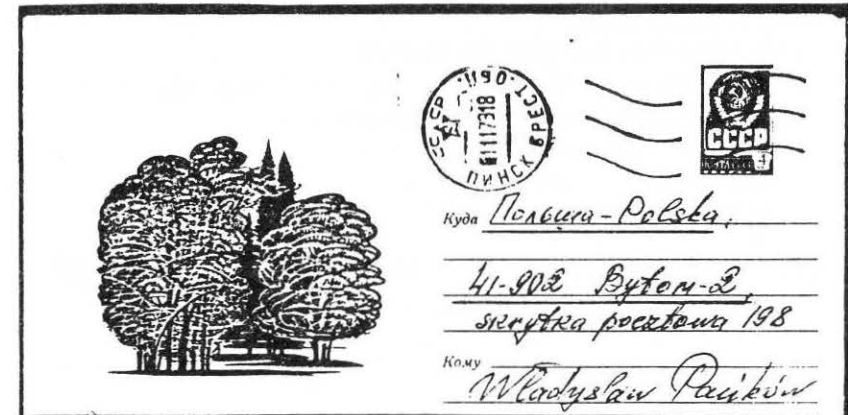 БССР ПИНСК БРЕСТ. ОБЛ.
СССР
4
Куда Польша - Polska,
41-902 Bytom-2,
skrytka pocztowa 198
Кому
Władysław Pańków